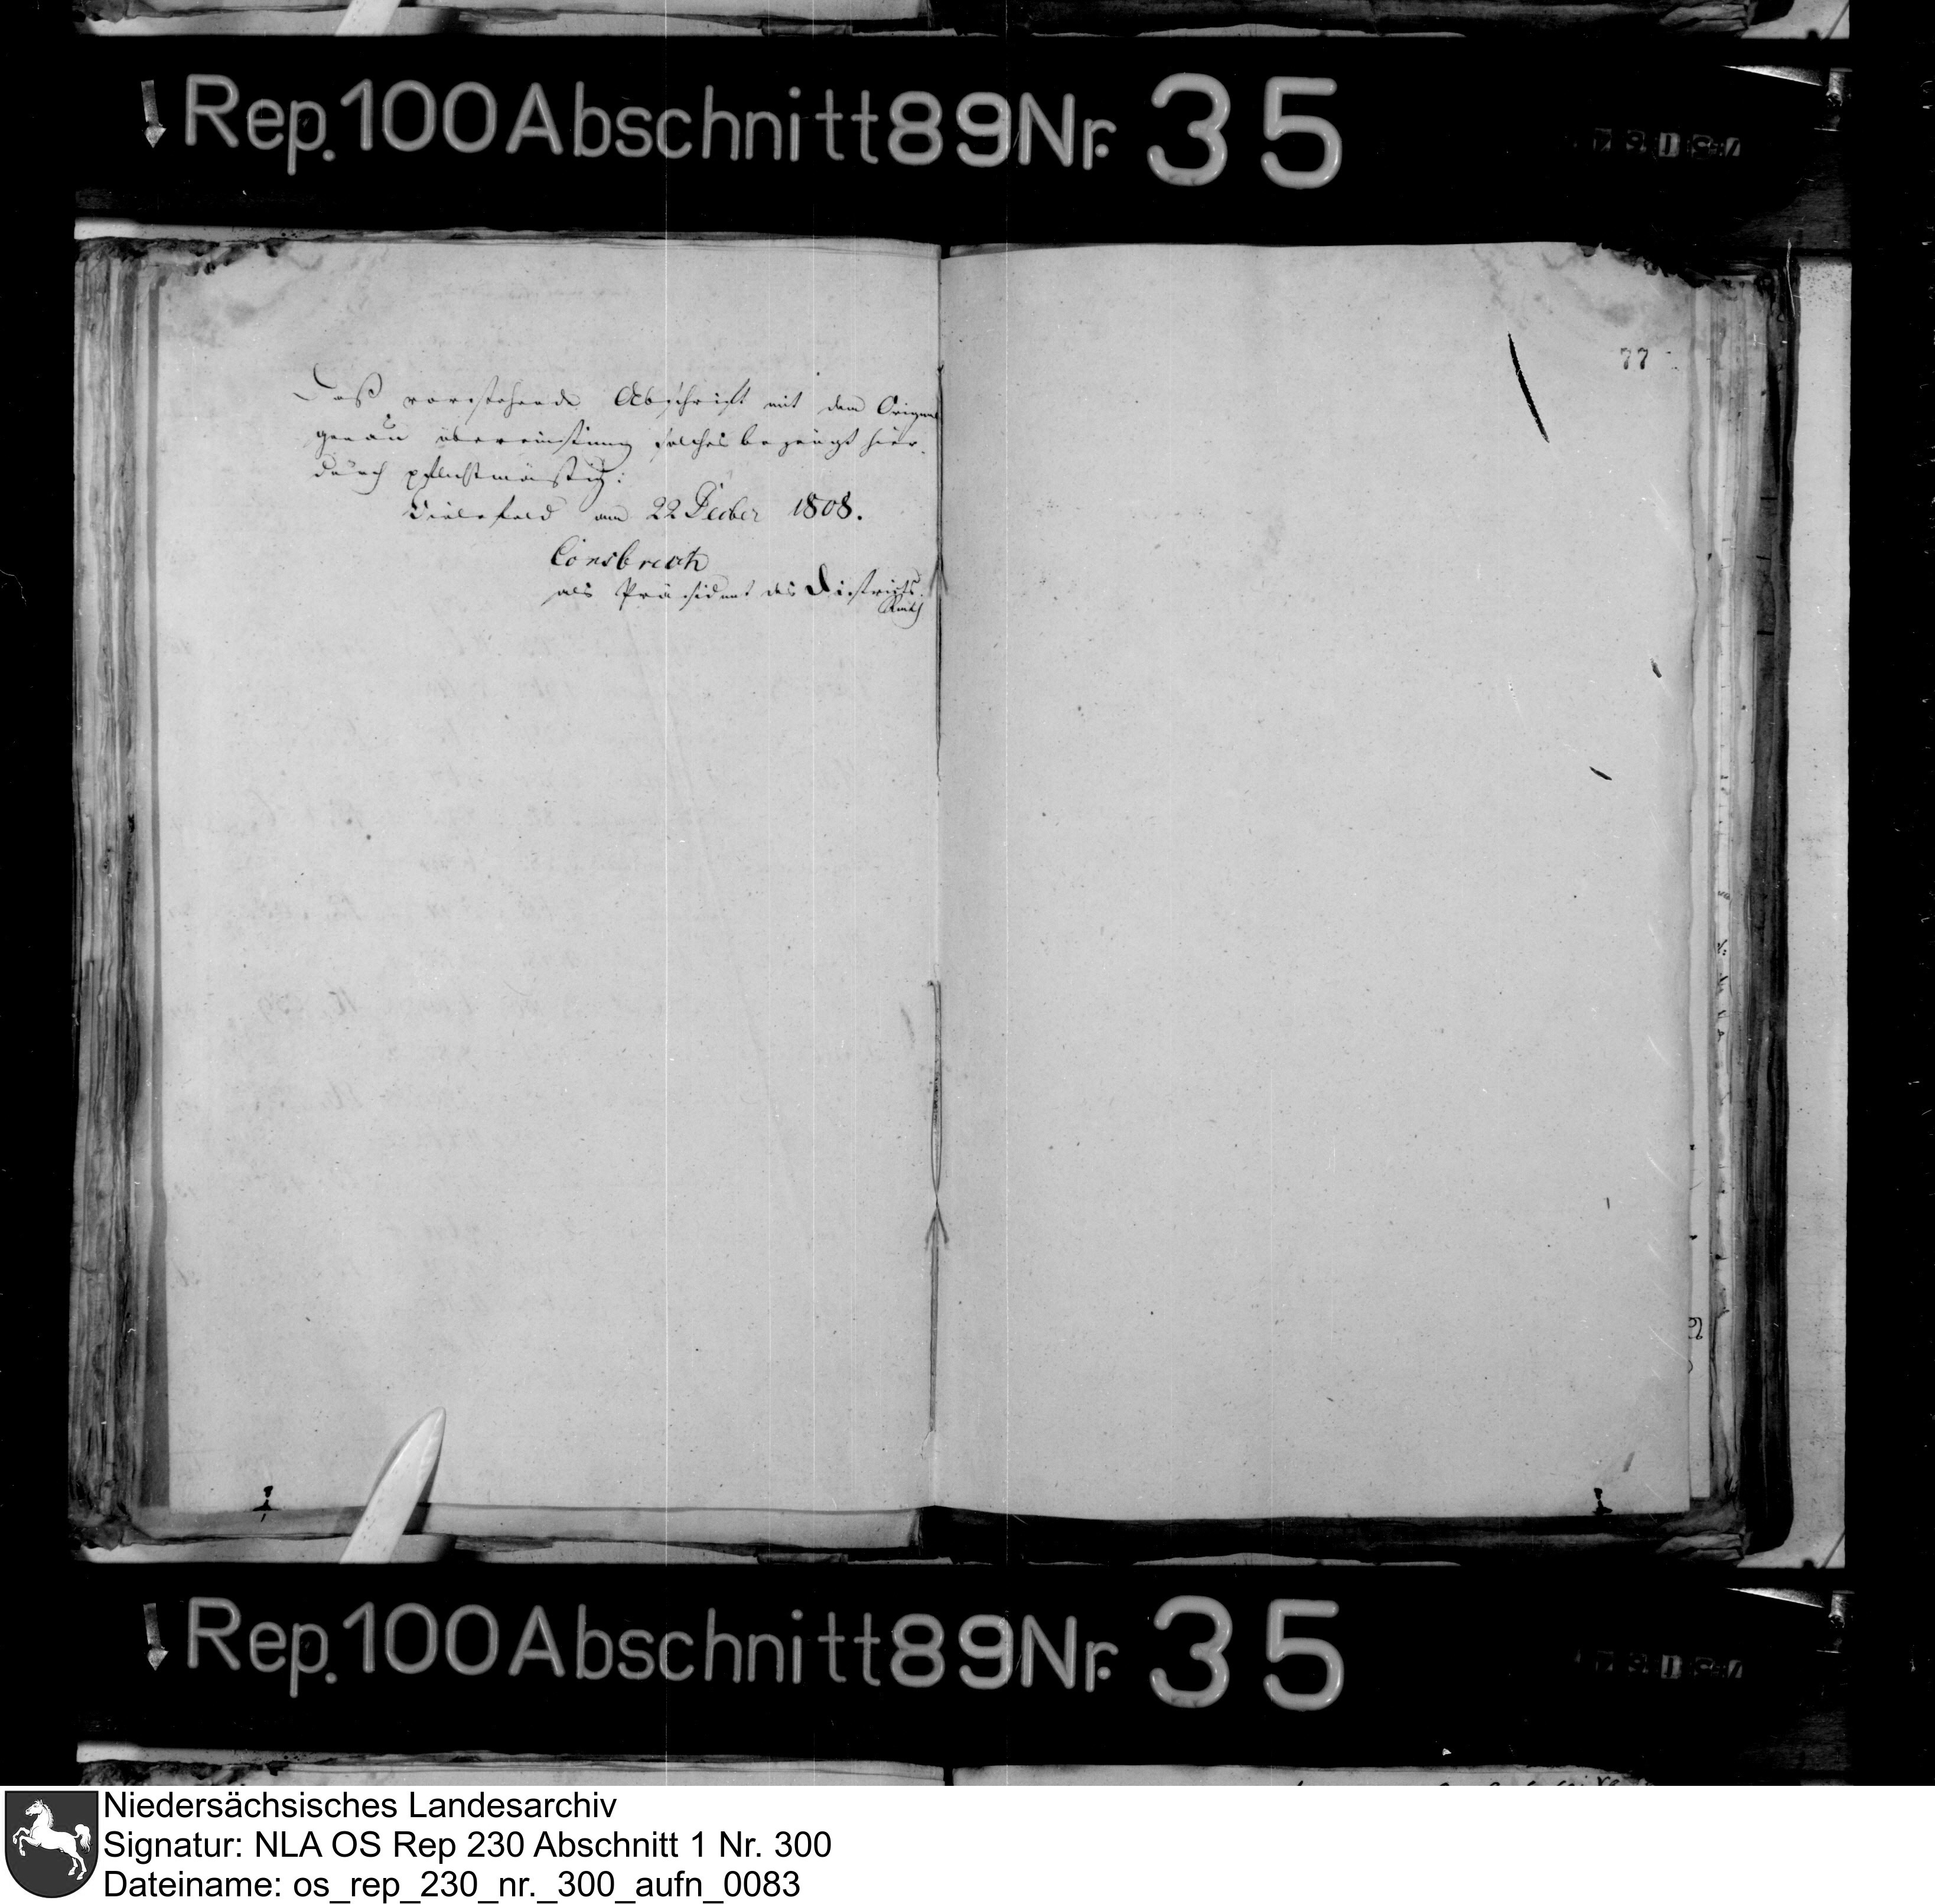 Rep. 100 Abschnitt 89 Nr. 35
77
Daß vorstehende Abschrift mit dem Original
genau übereinstimm solches bezeugt hier-
durch pflichtmäßig:
Bielefeld am 22 Decber 1808.
Consbruch
als Präsident des Districts
Raths
Rep. 100 Abschnitt 89 Nr. 35
Niedersächsisches Landesarchiv
Signatur: NLA OS Rep 230 Abschnitt 1 Nr. 300
Dateiname: os_rep_230_nr._300_aufn_0083